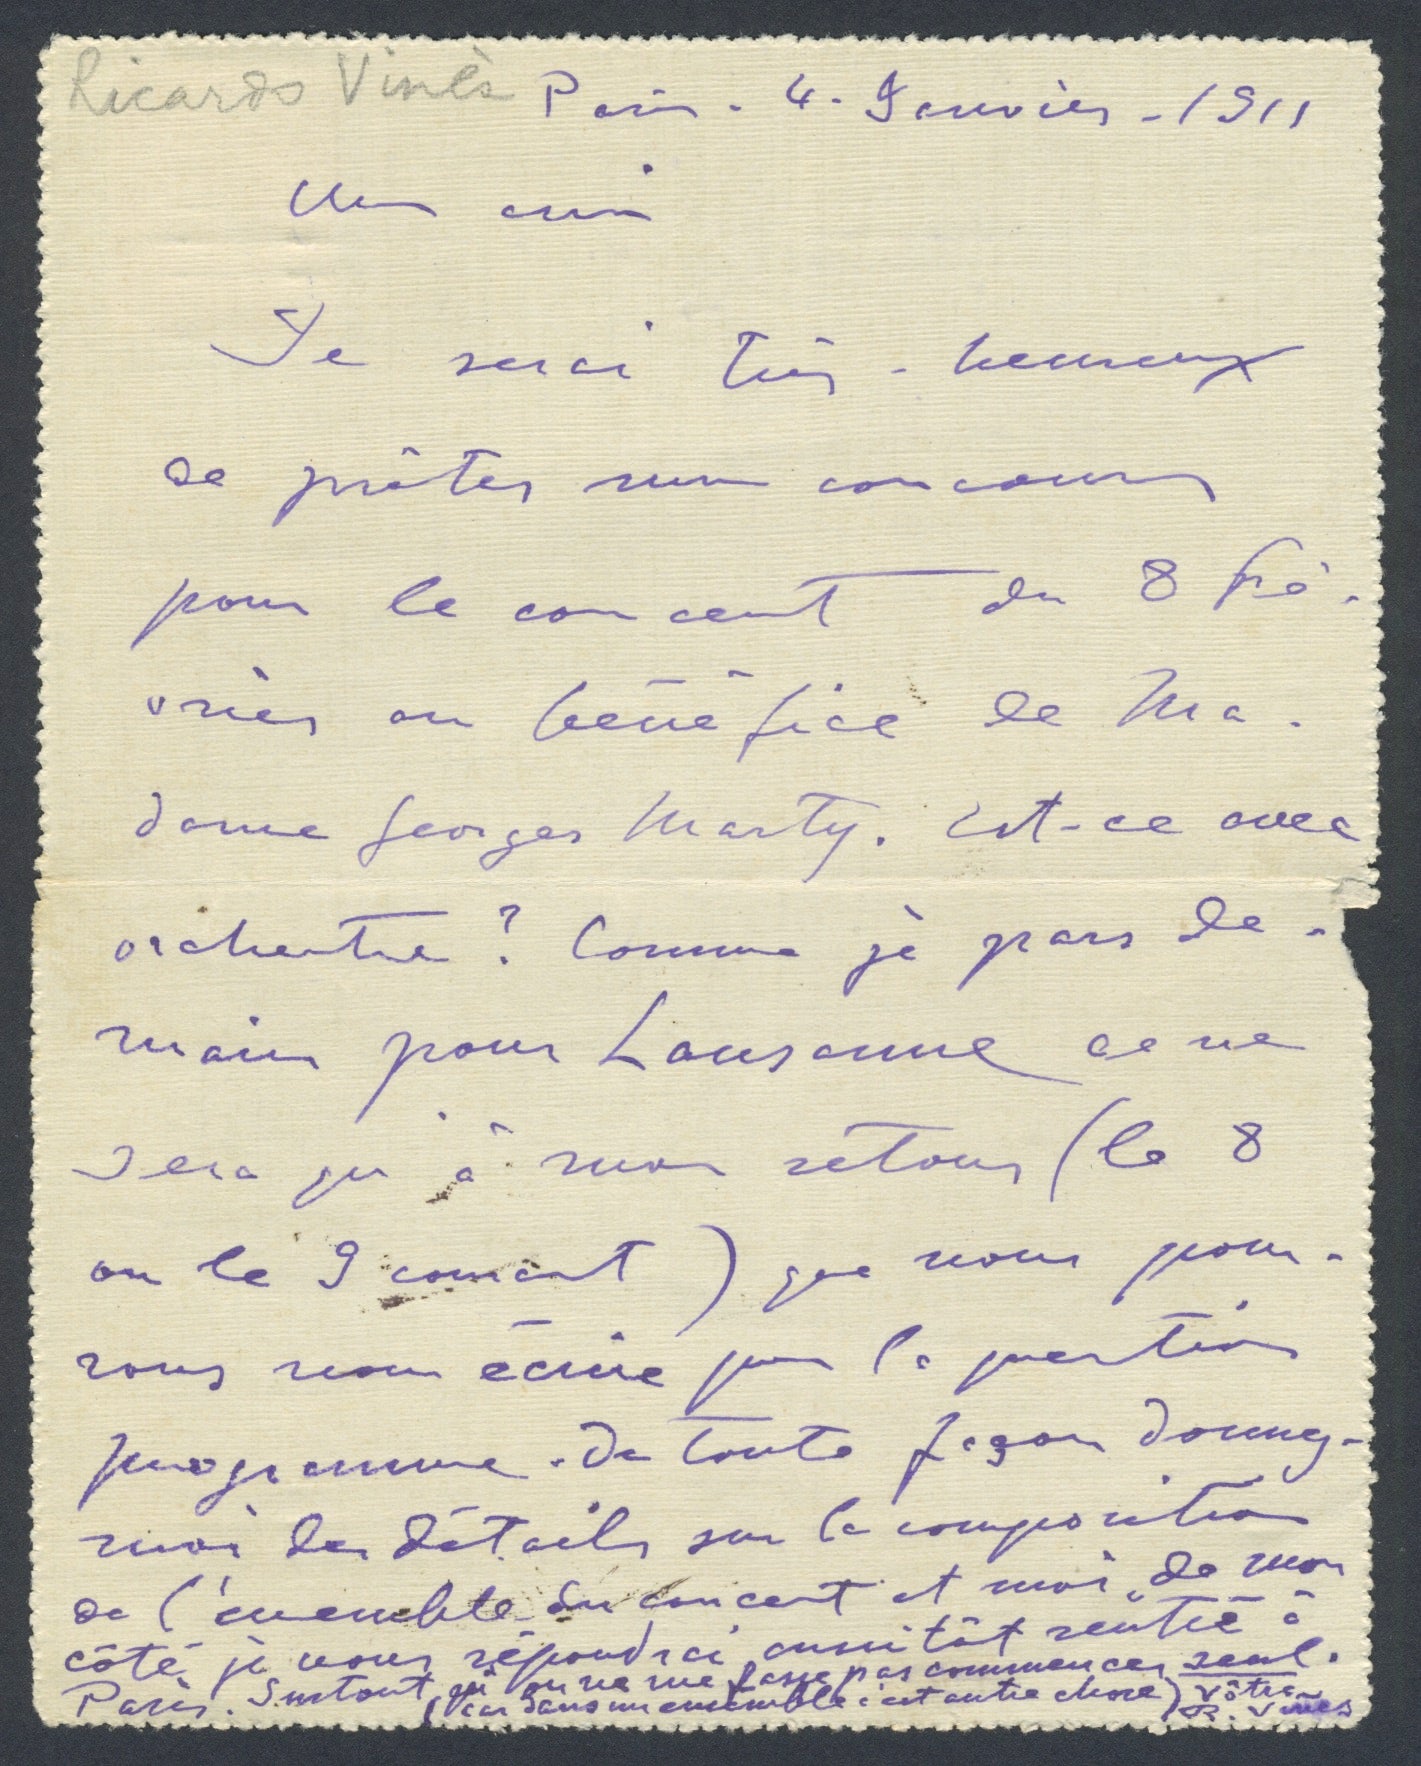 Ricardo Viñès
Paris - 4 - Janvier - 1911
Mon ami
Je serai très-heureux
de prêter mon concours
pour le concert du 8 Fé-
vrier au bénéfice de Ma-
dame Georges Marty. Est-ce avec
orchestre? Comme je pars de-
main pour Lausanne ce ne
sera qu'à mon retour (le 8
ou le 9 courant) que nous pour-
rons nous écrire pour la question
programme. De toute façon donnez-
moi des détails sur la composition
de l'ensemble du concert et moi, de mon
côté, je vous répondrai aussitôt rentré à
Paris. Surtout, qu'on ne me fasse pas commencer seul.
(car dans un ensemble c'est autre chose) Vôtre
R. Viñes